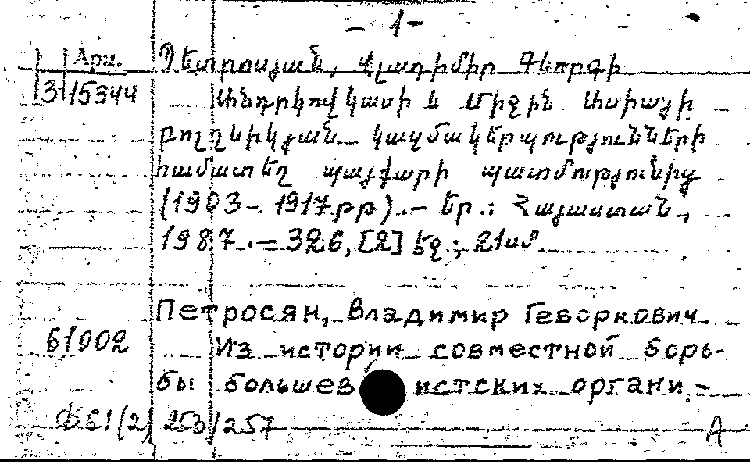 - 1 -
Арм. Պետրոսյան, Վլադիմիր Գևորգի
3/15344 Անդրկովկասի և Միջին Ասիայի
բոլշևիկյան կազմակերպությունների
համատեղ պայքարի պատմությունից
(1903-1917թթ).- Եր.: Հայաստան,
1987.- 326, [2] էջ; 21սմ.
Петросян, Владимир Геворкович
61002 Из истории совместной борь-
бы большев истских органи-
А